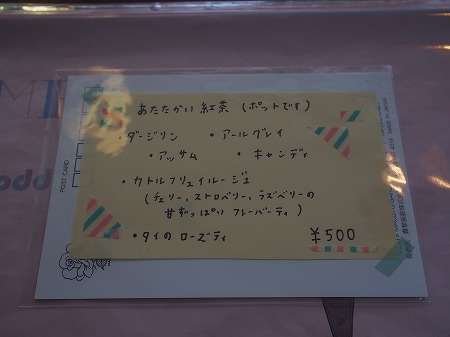 あたたかい紅茶 (ポットです)
・ダージリン ・アールグレイ
・アッサム ・キャンディ
・カトルフリュイルージュ
(チェリー、ストロベリー、ラズベリーの
甘ずっぱいフレーバーティ)
・タイのローズティ ¥500
POST CARD